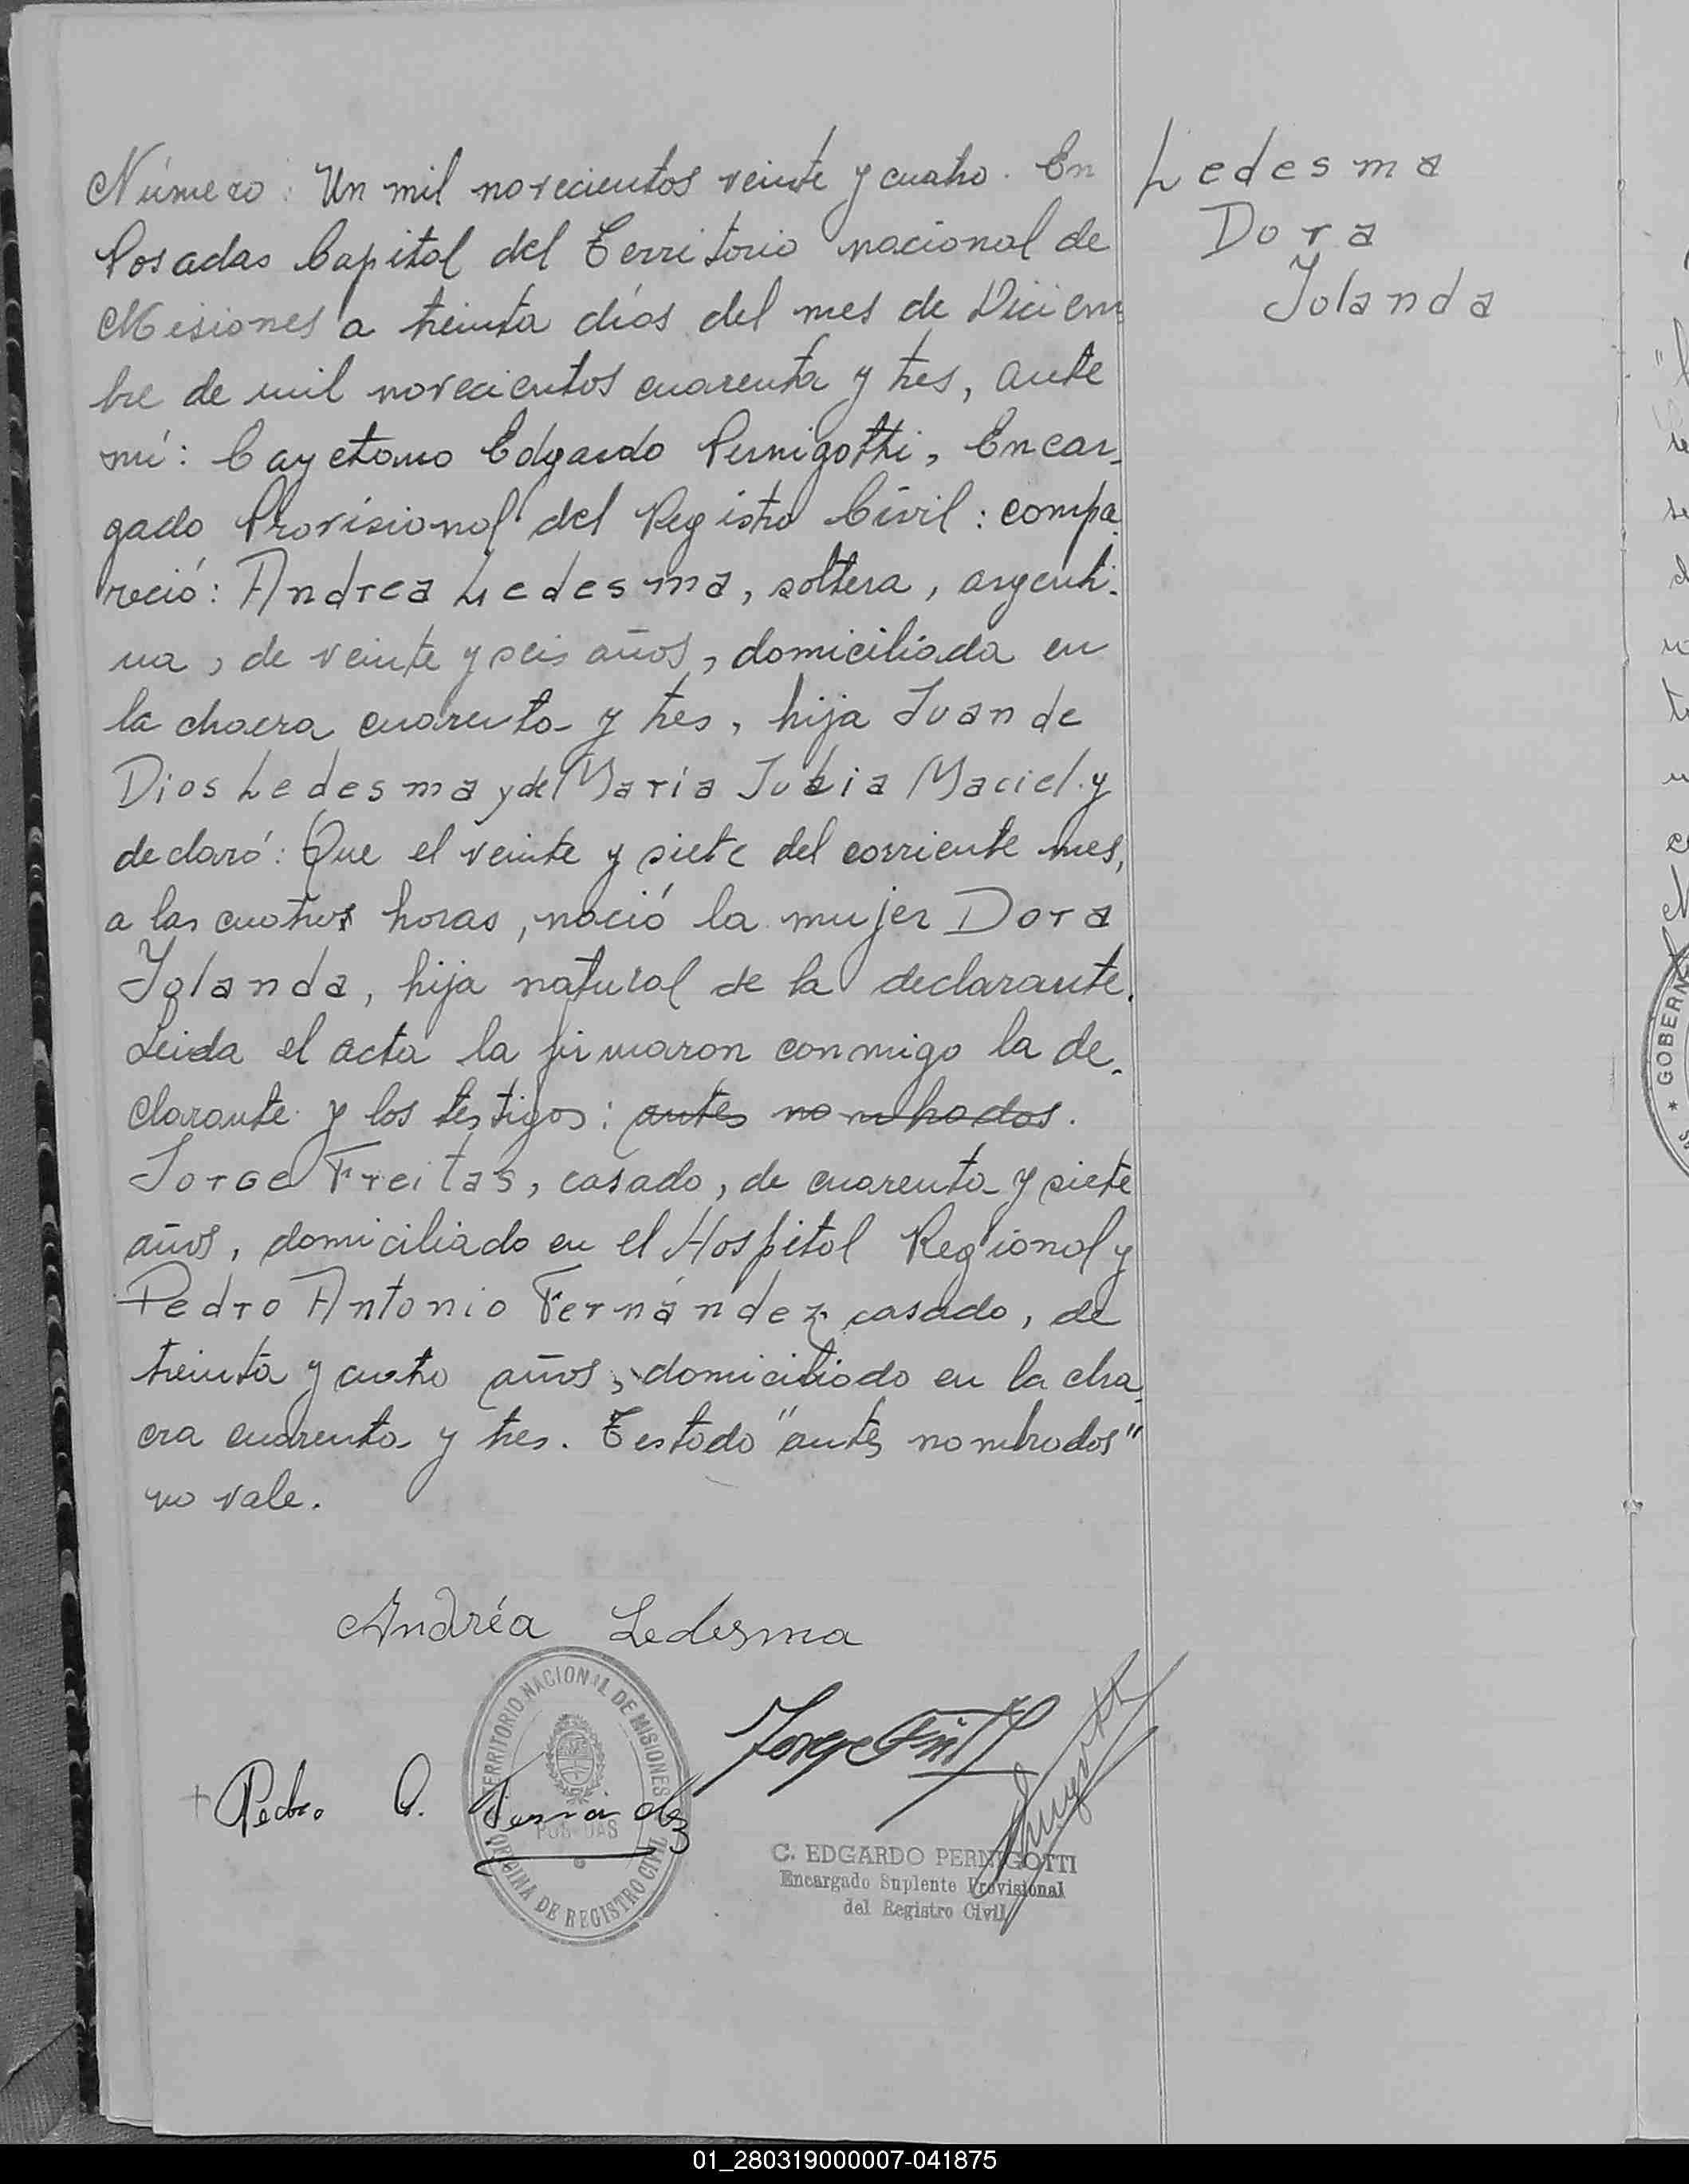 Número: Un mil novecientos veinte y cuatro. En
Posadas Capital del Territorio nacional de
Misiones a treinta días del mes de Diciem
bre de mil novecientos cuarenta y tres, ante
mí: Cayetano Edgardo Pernigotti, Encar-
gado Provisional del Registro Civil: compa-
reció: Andrea Ledesma, soltera, argenti-
na, de veinte y seis años, domiciliada en
la chacra cuarenta y tres, hija Juan de
Dios Ledesma y de María Maciel y
declaró: Que el veinte y siete del corriente mes,
a las cuatro horas, nació la mujer Dora
Iolanda, hija natural de la declarante.
Leida el acta la firmaron conmigo la de-
clarante y los testigos: antes nombrados.
Jorge Freitas, casado, de cuarenta y siete
años, domiciliado en el Hospital Regional y
Pedro Antonio Fernández casado, de
treinta y cuatro años, domiciliado en la cha-
cra cuarenta y tres. Testado "antes nombrados"
no vale.
Ledesma
Dora
Iolanda
Andréa Ledesma
Jorge
Pedro A. Fernández
TERRITORIO NACIONAL DE MISIONES
POSADAS
OFICINA DE REGISTRO CIVIL
C. EDGARDO PERNIGOTTI
Encargado Suplente Provisional
del Registro Civil
* GOBERN
01_280319000007-041875